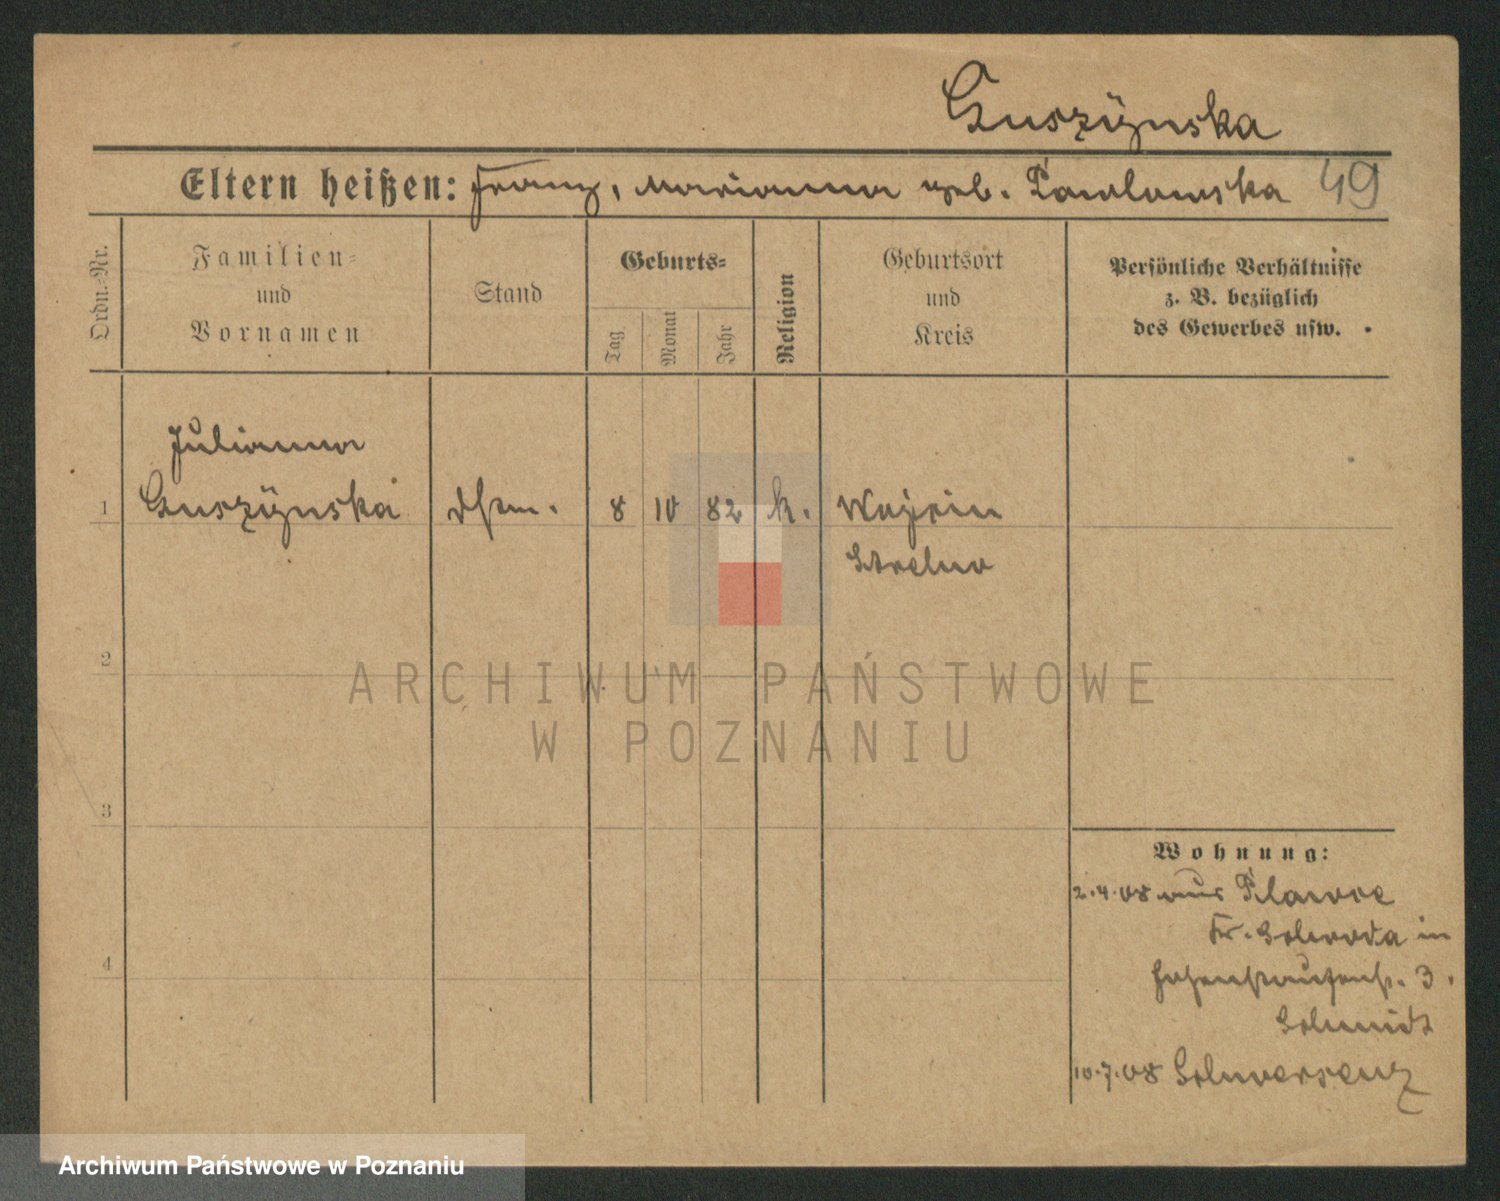 Guszÿnska
Eltern heißen: Franz, Marianna geb. Pawlowska 49
Ordn.-Nr.
Familien-
und
Vornamen
Stand
Geburts-
Tag
Monat
Jahr
Religion
Geburtsort
und
Kreis
Persönliche Verhältnisse
z. B. bezüglich
des Gewerbes usw.
Julianna
1 Guszÿnska 8 10 82 k. Woÿcin
Strelno
2
ARCHIWUM PAŃSTWOWE
W POZNANIU
3
Wohnung:
2.4.08 aus Plawce
Kr. Schroda in
Hohenstaufenst. 3.
Schmidt
4
10.7.08 Schwersenz
Archiwum Państwowe w Poznaniu